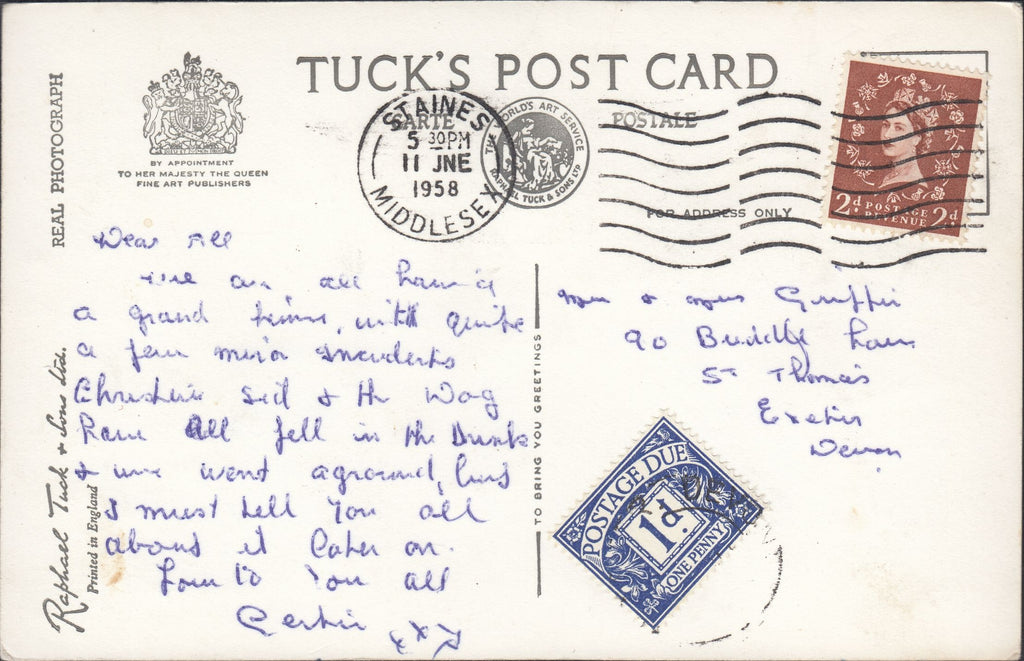 TUCK'S POST CARD
CARTE POSTALE
REAL PHOTOGRAPH
BY APPOINTMENT
TO HER MAJESTY THE QUEEN
FINE ART PUBLISHERS
STAINES
5 30PM
11 JNE
1958
MIDDLESEX
THE WORLD'S ART SERVICE
RAPHAEL TUCK & SONS LTD
FOR ADDRESS ONLY
2d POSTAGE REVENUE 2d
Dear All
We are all having
a grand time, with quite
a few minor incidents
Sid & the Dog
have all fell in the Drink
& we went aground, but
I must tell you all
about it later on.
Love to You all
xxx
TO BRING YOU GREETINGS
Raphael Tuck & Sons Ltd.
Printed in England
Mr & Mrs
90 Buddle Lane
St Thomas
Exeter
Devon
POSTAGE DUE
1d
ONE PENNY